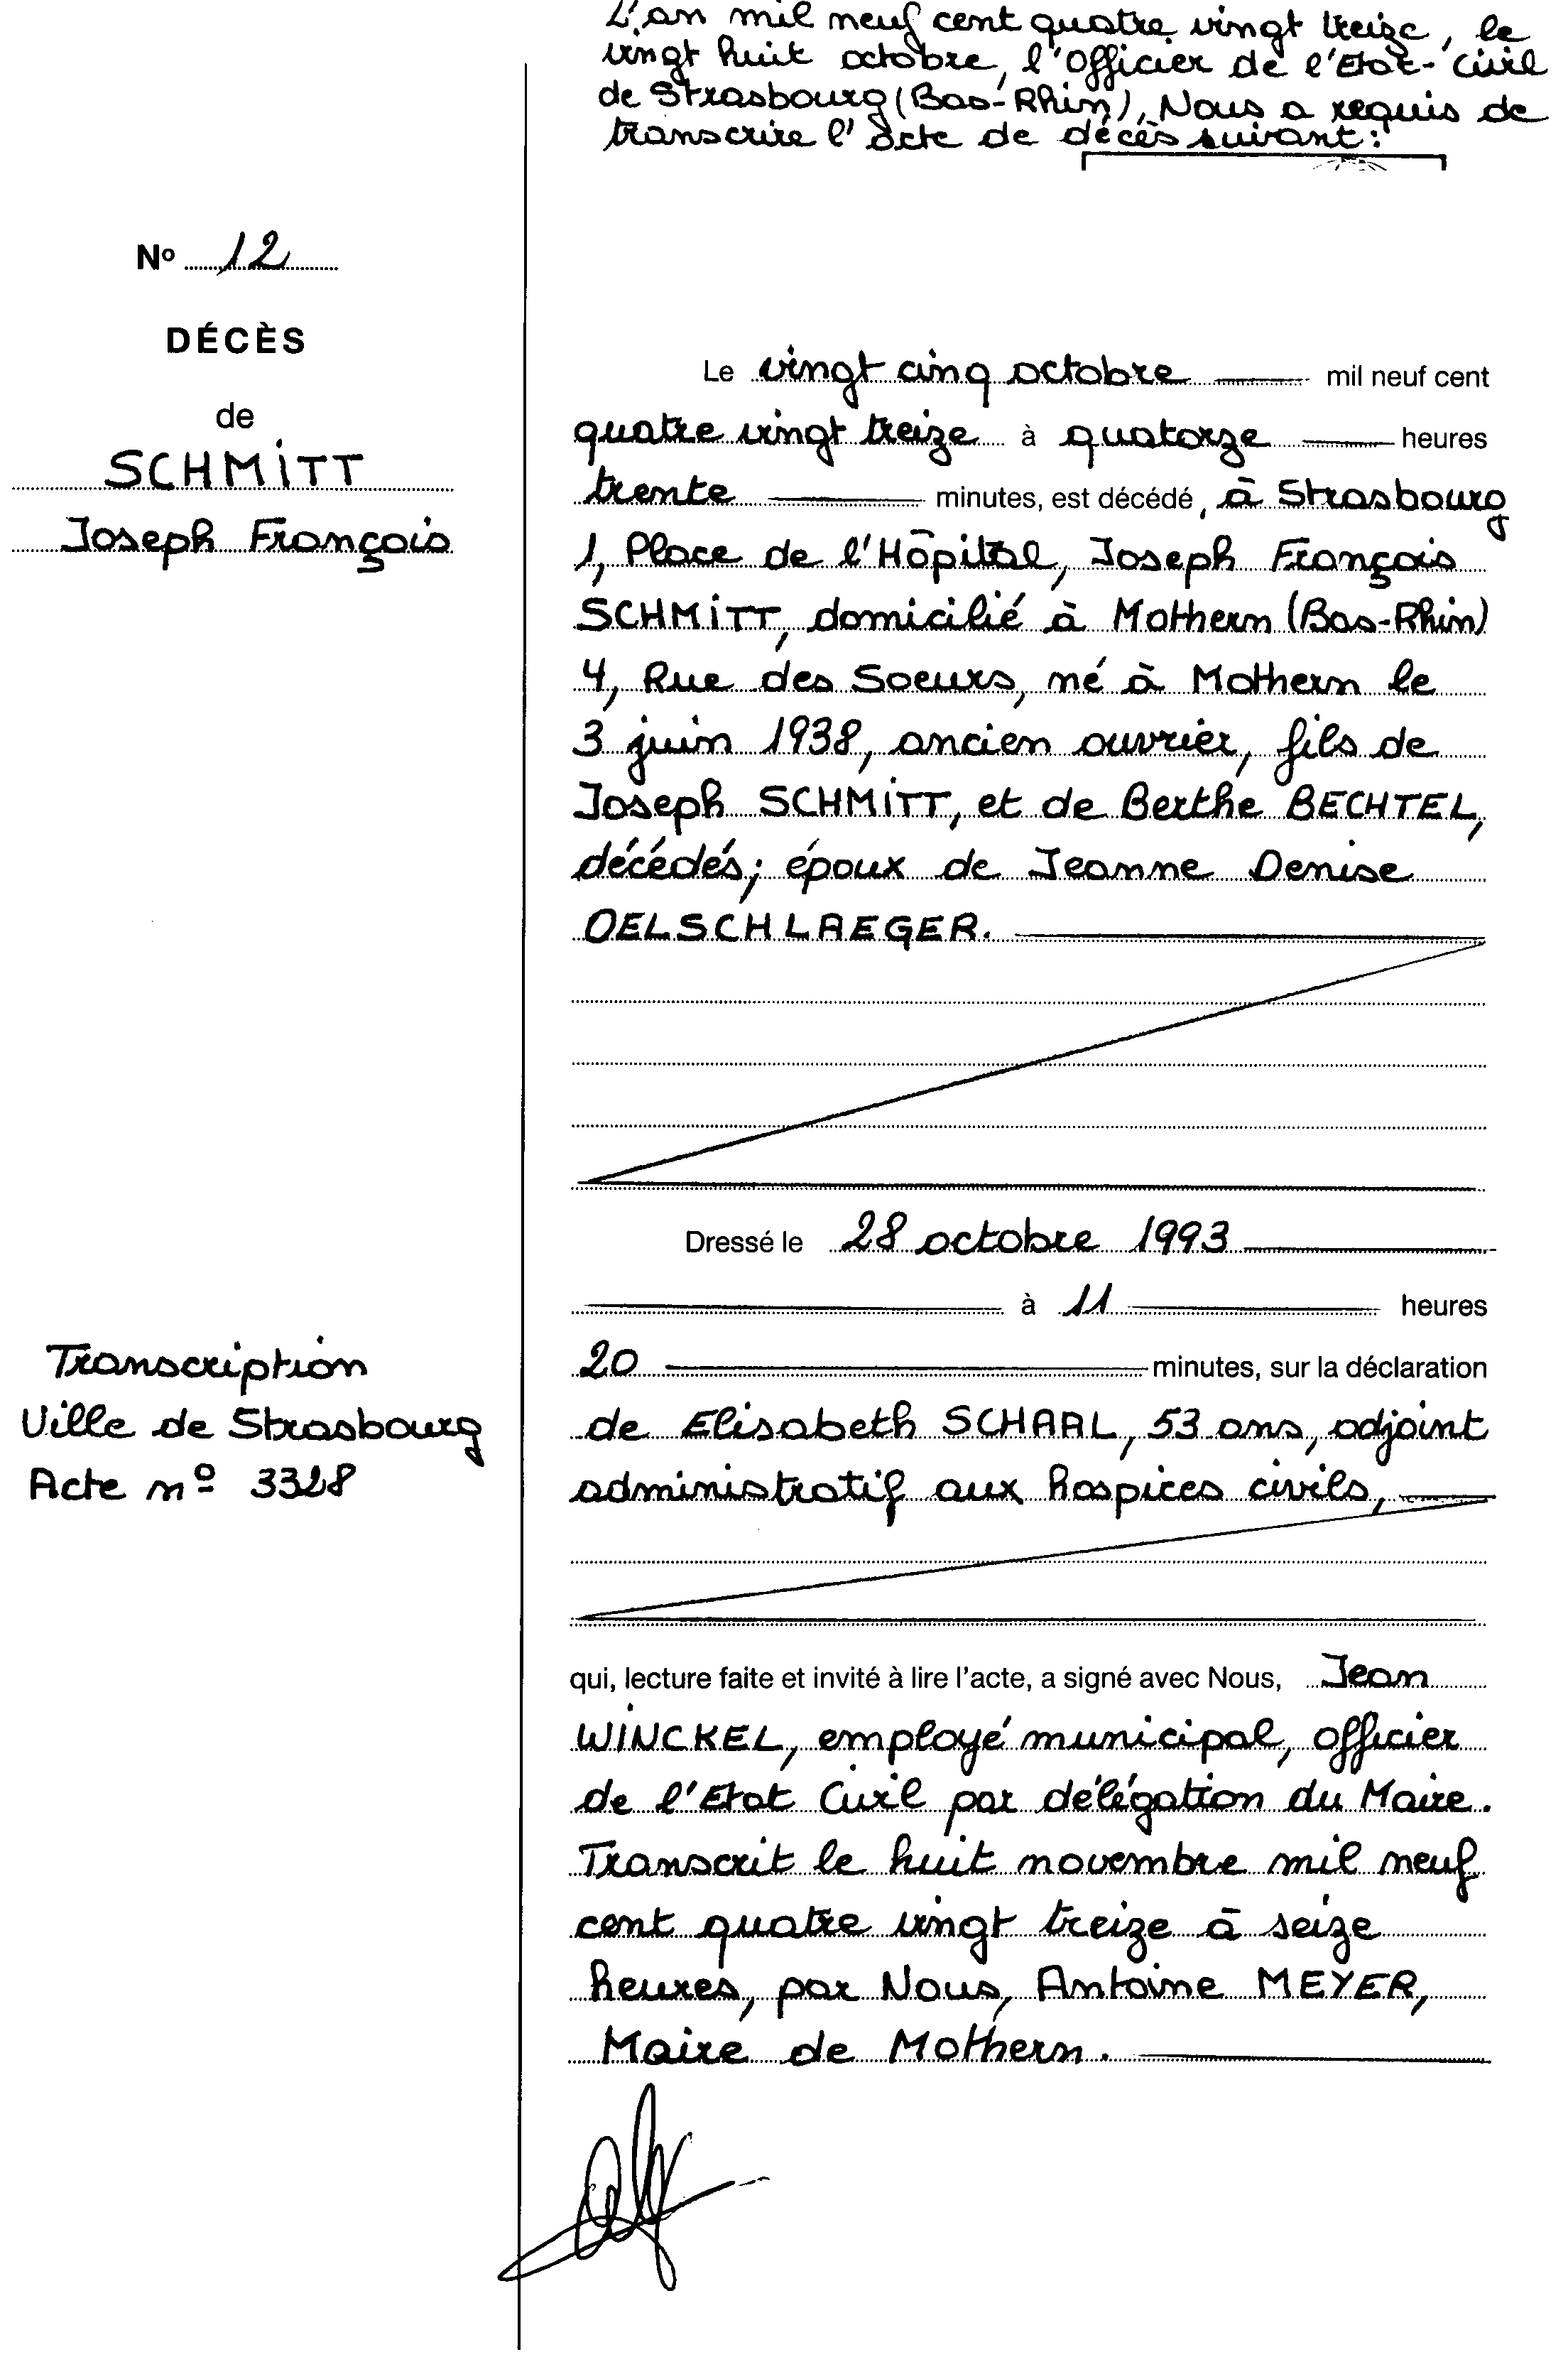 L'an mil neuf cent quatre vingt treize, le
vingt huit octobre, l'Officier de l'Etat-Civil
de Strasbourg (Bas-Rhin), Nous a requis de
transcrire l'acte de décès suivant:
Nº 12
DÉCÈS
de
SCHMITT
Joseph François
Le vingt cinq octobre mil neuf cent
quatre vingt treize à quatorze heures
trente minutes, est décédé, à Strasbourg
1, Place de l'Hôpital, Joseph François
SCHMITT, domicilié à Mothern (Bas-Rhin)
4, Rue des Soeurs, né à Mothern le
3 juin 1938, ancien ouvrier, fils de
Joseph SCHMITT, et de Berthe BECHTEL,
décédés; époux de Jeanne Denise
OELSCHLAEGER.
Dressé le 28 octobre 1993
à 11 heures
20 minutes, sur la déclaration
de Elisabeth SCHAAL, 53 ans, adjoint
administratif aux hospices civils,
Transcription
Ville de Strasbourg
Acte nº 3328
qui, lecture faite et invité à lire l'acte, a signé avec Nous, Jean
WINCKEL, employé municipal, officier
de l'Etat Civil par délégation du Maire.
Transcrit le huit novembre mil neuf
cent quatre vingt treize à seize
heures, par Nous, Antoine MEYER,
Maire de Mothern.